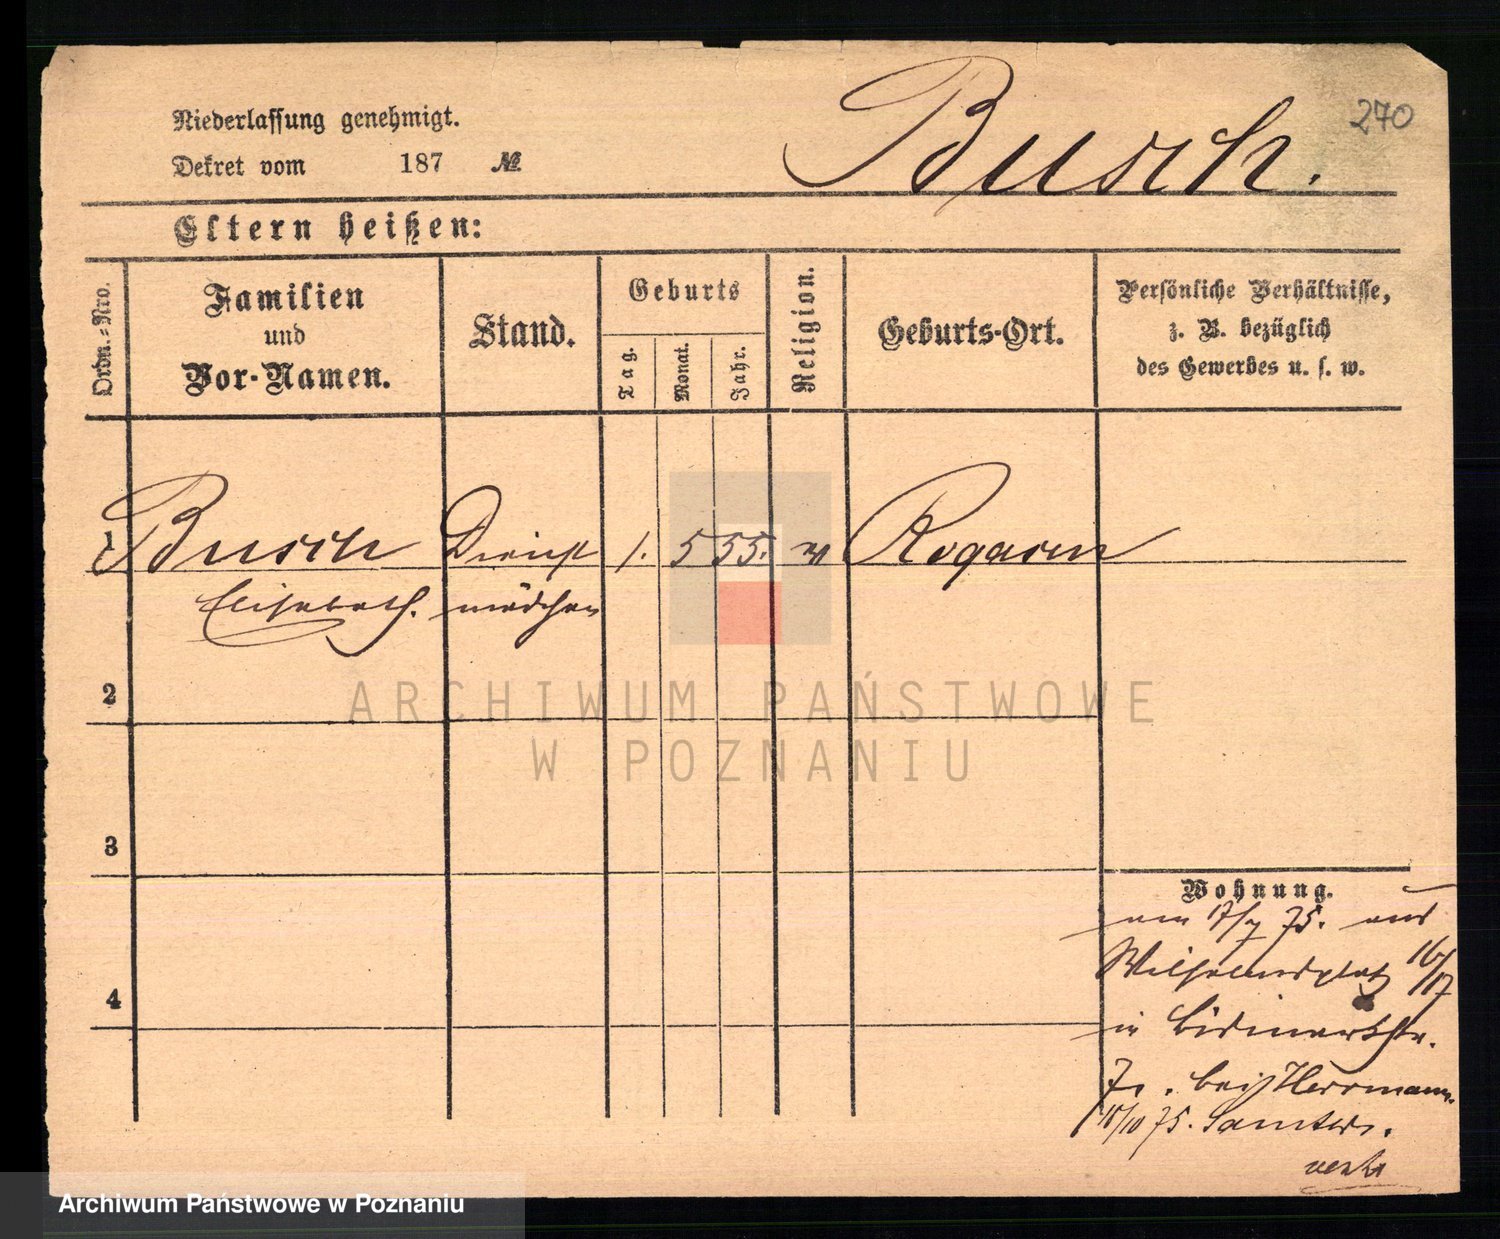 Busch.
270
Niederlassung genehmigt.
Dekret vom 187 №
Eltern heißen:
Ordn.-Nro.
Familien
und
Vor-Namen.
Stand.
Geburts
Tag.
Monat.
Jahr.
Religion.
Geburts-Ort.
Persönliche Verhältnisse,
z. B. bezüglich
des Gewerbes u. s. w.
1 Busch Dienst 1. 5 55. Rogasen
Elisabeth. mädchen
2
ARCHIWUM PAŃSTWOWE
W POZNANIU
3
Wohnung.
am 17/7 75. aus
Wilhelmsplatz 16/17
in Bismarkstr.
7. bei Herrmann.
18/10 75. Samter.
4
Archiwum Państwowe w Poznaniu